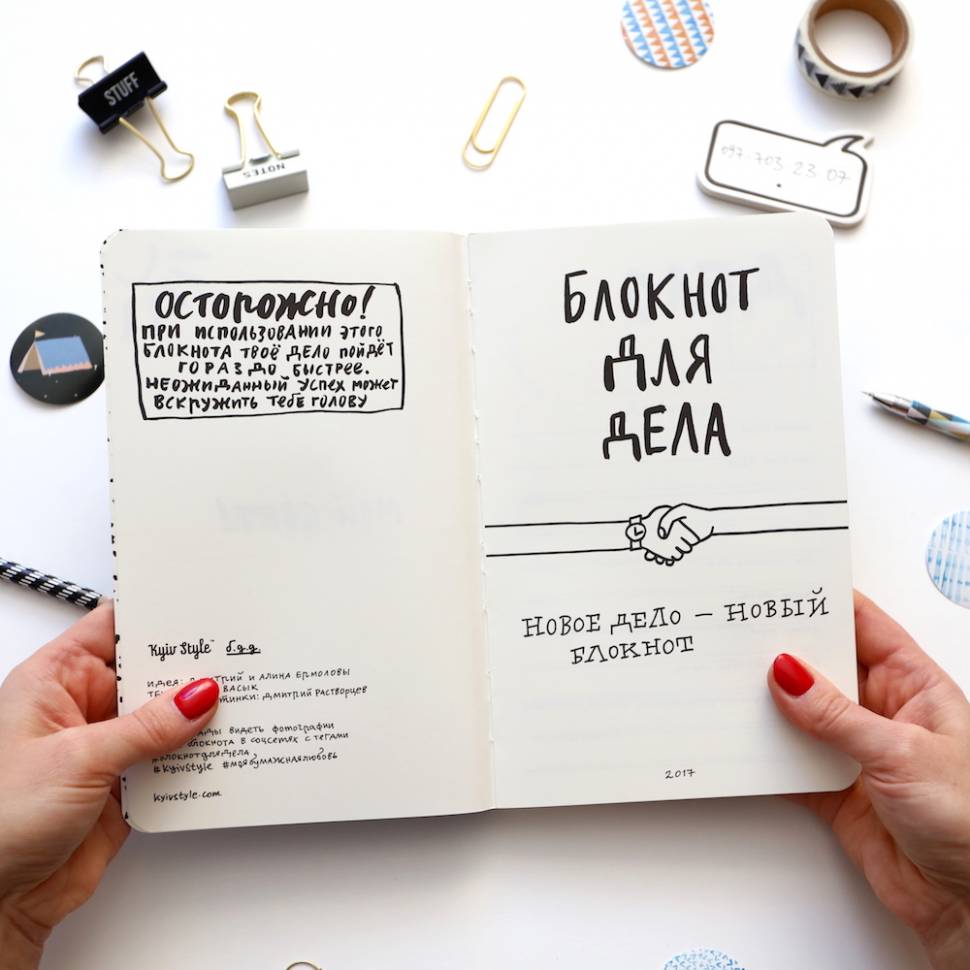 STUFF
NOTES
097-703 23 07
ОСТОРОЖНО!
ПРИ ИСПОЛЬЗОВАНИИ ЭТОГО
БЛОКНОТА ТВОЁ ДЕЛО ПОЙДЁТ
ГОРАЗДО БЫСТРЕЕ.
НЕОЖИДАННЫЙ УСПЕХ МОЖЕТ
ВСКРУЖИТЬ ТЕБЕ ГОЛОВУ
Kyiv Style™ б.д.д.
ИДЕЯ: ДМИТРИЙ И АЛИНА ЕРМОЛОВЫ
ВАСЫК
ДМИТРИЙ РАСТОРЦЕВ
ВИДЕТЬ ФОТОГРАФИИ
БЛОКНОТА В СОЦСЕТЯХ С ТЕГАМИ
#БЛОКНОТДЛЯДЕЛА
#KyivStyle #МОЯБУМАЖНАЯЛЮБОВЬ
kyivstyle.com
БЛОКНОТ
ДЛЯ
ДЕЛА
НОВОЕ ДЕЛО – НОВЫЙ
БЛОКНОТ
2017